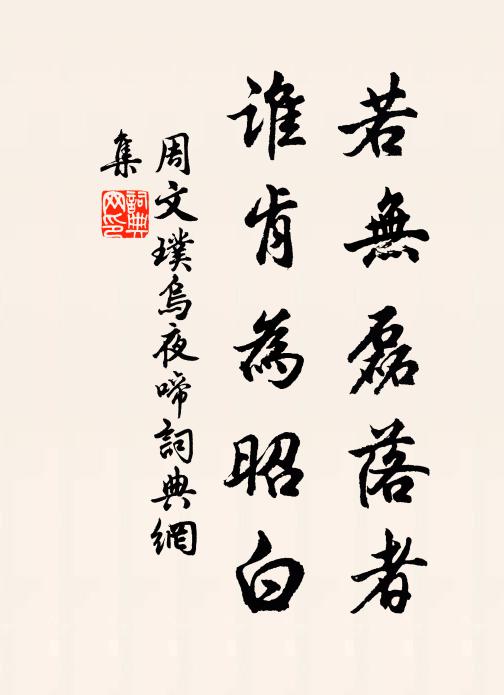 若無磊落者
谁肯為昭白
周文璞烏夜啼詞典網
集
詞典網印